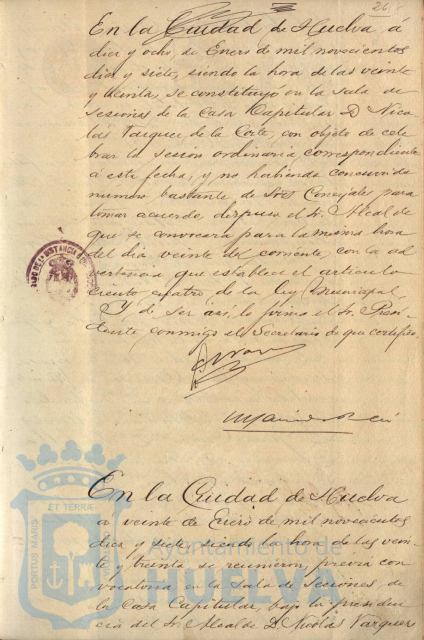 26
En la Ciudad de Huelva á
diez y ocho de Enero de mil novecientos
diez y siete, siendo la hora de las veinte
y treinta, se constituyó en la Sala de
sesiones de la Casa Capitular D. Nico
lás Vazquez de la Corte, con objeto de cele
brar la sesion ordinaria correspondiente
á esta fecha, y no habiendo concurrido
numero bastante de Sres Concejales para
tomar acuerdo, dispuso el Sr. Alcalde
que se convocara para la misma hora
del dia veinte del corriente, con la ad
vertencia que establece el articulo
ciento cuatro de la Ley Municipal.
Y de ser asi, lo firma el Sr. Presi-
dente conmigo el Secretario de que certifico.
En la Ciudad de Huelva
a veinte de Enero de mil novecientos
diez y siete, siendo la hora de las vein
te y treinta se reunieron, previa con
vocatoria en la Sala de Sesiones de
la Casa Capitular, bajo la presiden
cia del Sr. Alcalde D. Nicolás Vazquez
PORTUS MARIS ET TERRÆ
Ayuntamiento de
HUELVA